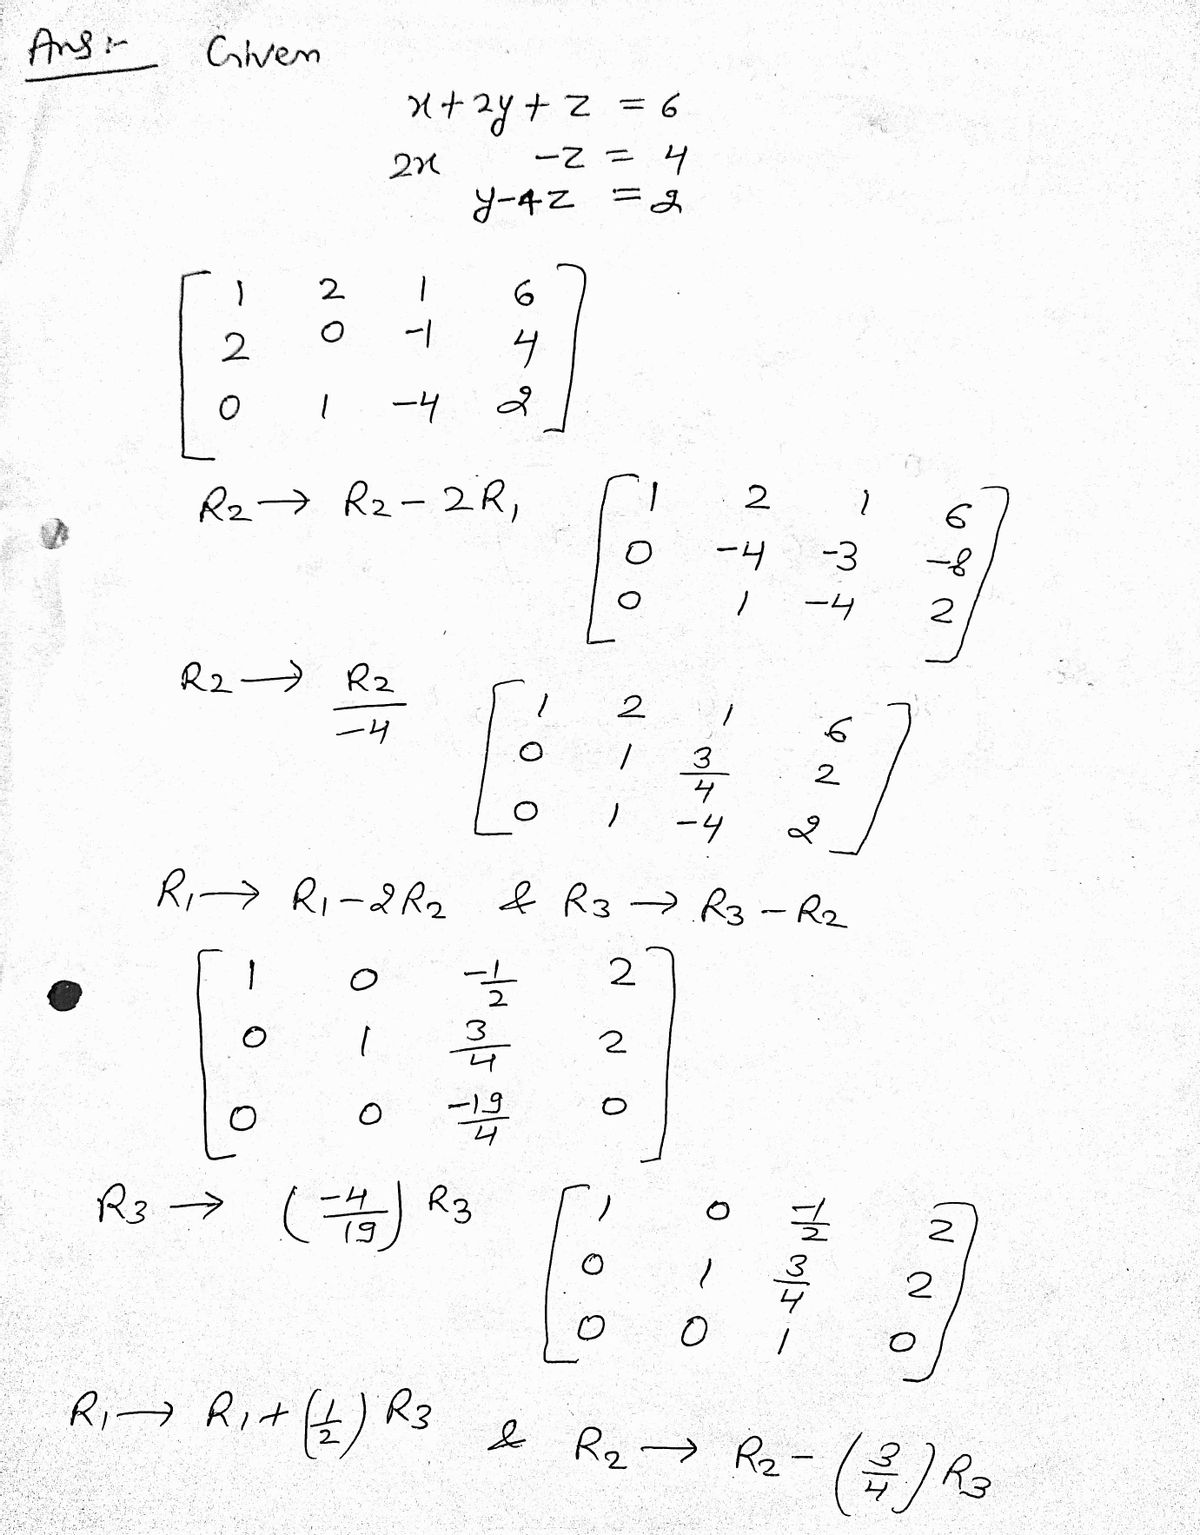 Ans :- Given
x + 2y + z = 6
2x -z = 4
y-4z = 2
[ 1 2 1 6
2 0 -1 4
0 1 -4 2 ]
R2 → R2 - 2R1 [ 1 2 1 6
0 -4 -3 -8
0 1 -4 2 ]
R2 → R2/-4 [ 1 2 1 6
0 1 3/4 2
0 1 -4 2 ]
R1 → R1 - 2R2 & R3 → R3 - R2
[ 1 0 -1/2 2
0 1 3/4 2
0 0 -19/4 0 ]
R3 → (-4/19) R3 [ 1 0 -1/2 2
0 1 3/4 2
0 0 1 0 ]
R1 → R1 + (1/2) R3 & R2 → R2 - (3/4) R3